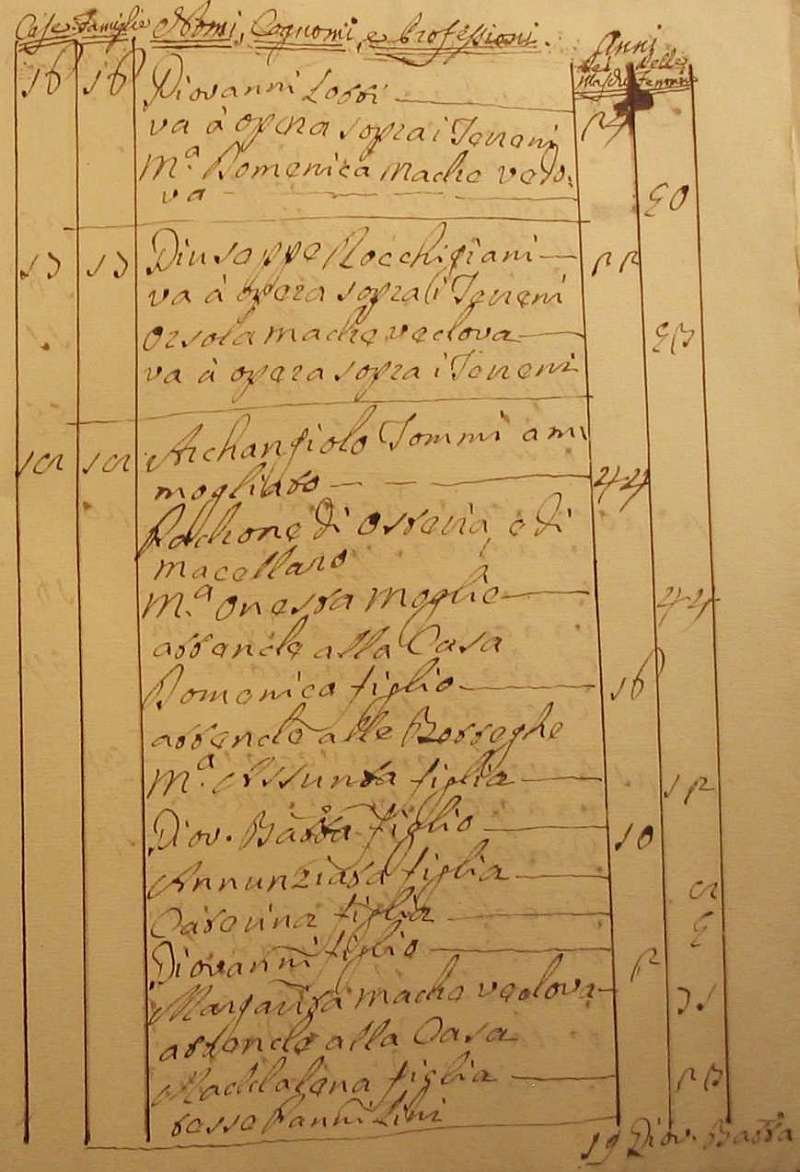 Case. Famiglie Nomi, Cognomi, e Professioni. Anni
dei Maschi delle Femmine
16 16 Giovanni Lotti
va à opera sopra i Terreni 24
M.ª Domenica Madre vedo:
va 50
17 17 Giuseppe Rocchigiani 22
va à opera sopra i Terreni
Orsola madre vedova 53
va à opera sopra i Terreni
18 18 Archangiolo Tommi am
mogliato 44
Padrone di Osteria, e di
macellaro
M.ª Onesta Moglie 44
attende alla Casa
Domenico figlio 16
attende alle Botteghe
M.ª Assunta figlia 12
Giov. Batta figlio 10
Annunziata figlia 8
Caterina figlia 5
Giovanni figlio 2
Margarita madre vedova 71
attende alla Casa
Maddalena figlia 23
tesse Panni Lini
19 Giov. Batta